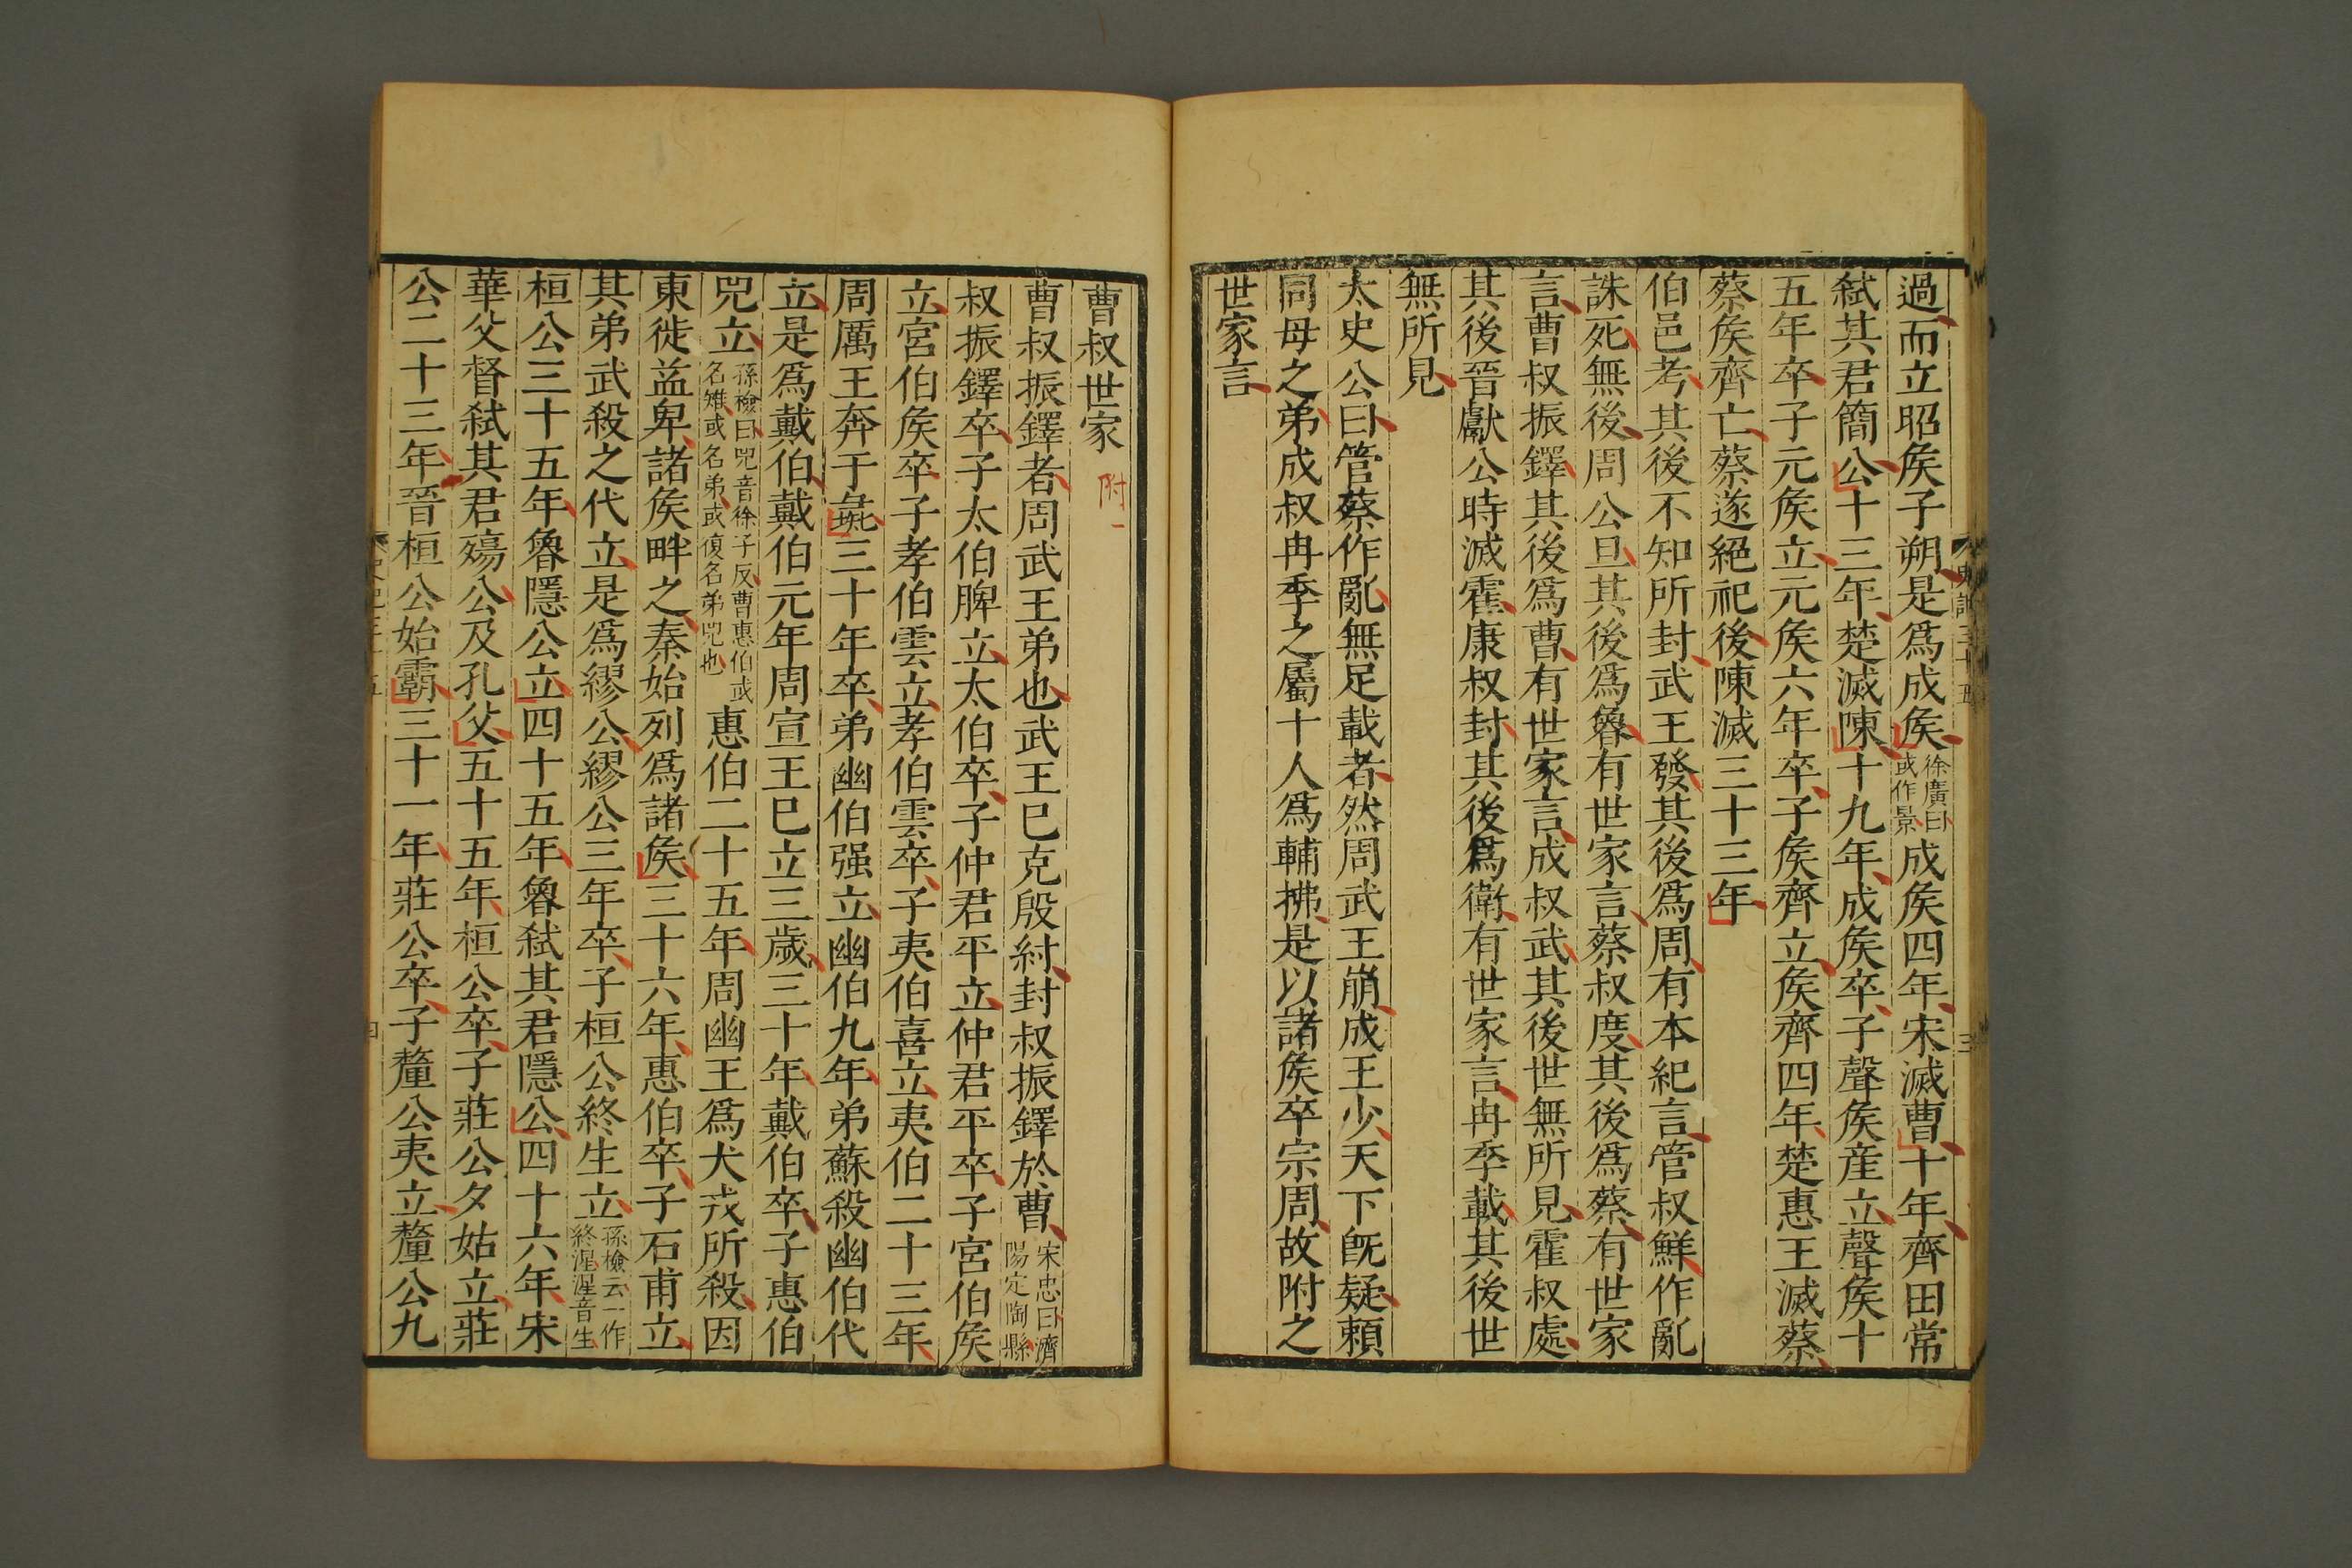 過而立昭矦子朔是爲成矦徐廣曰或作景成矦四年宋滅曹十年齊田常
弑其君簡公十三年楚滅陳十九年成矦卒子聲矦産立聲矦十
五年卒子元矦立元矦六年卒子矦齊立矦齊四年楚惠王滅蔡
蔡矦齊亡蔡遂絕祀後陳滅三十三年
伯邑考其後不知所封武王發其後爲周有本紀言管叔鮮作亂
誅死無後周公旦其後爲魯有世家言蔡叔度其後爲蔡有世家
言曹叔振鐸其後爲曹有世家言成叔武其後世無所見霍叔處
其後晉獻公時滅霍康叔封其後爲衛有世家言冉季載其後世
無所見
太史公曰管蔡作亂無足載者然周武王崩成王少天下旣疑賴
同母之弟成叔冉季之屬十人爲輔拂是以諸矦卒宗周故附之
世家言
曹叔世家 附一
曹叔振鐸者周武王弟也武王巳克殷紂封叔振鐸於曹宋忠曰濟陽定陶縣
叔振鐸卒子太伯脾立太伯卒子仲君平立仲君平卒子宮伯矦
立宮伯矦卒子孝伯雲立孝伯雲卒子夷伯喜立夷伯二十三年
周厲王奔于彘三十年卒弟幽伯强立幽伯九年弟蘇殺幽伯代
立是爲戴伯戴伯元年周宣王巳立三歲三十年戴伯卒子惠伯
兕立孫檢曰兕音徐子反曹惠伯或名雉或名弟或復名弟兕也惠伯二十五年周幽王爲犬戎所殺因
東徙益卑諸矦畔之秦始列爲諸矦三十六年惠伯卒子石甫立
其弟武殺之代立是爲繆公繆公三年卒子桓公終生立孫檢云一作終湦湦音生
桓公三十五年魯隱公立四十五年魯弑其君隱公四十六年宋
華父督弑其君殤公及孔父五十五年桓公卒子莊公夕姑立莊
公二十三年晉桓公始霸三十一年莊公卒子釐公夷立釐公九